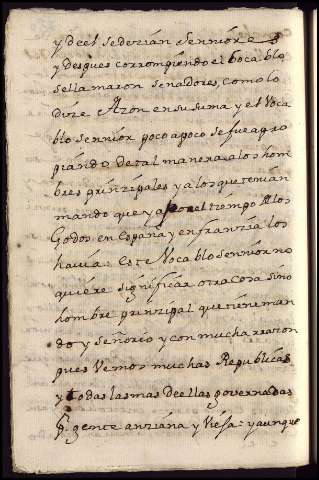 y de el se dezian Sennióre
y despues corrompiendo el bocablo
se llamaron Senadores, como lo
dize Azon en su suma y el Voca
blo sennior poco apoco se fue apro
piando De tal manera alos hom
bres prinzipales y a los que tenian
mando que ya por el tiempo de los
Godos en españa y en franzia los
havia: Este Vocablo sennior no
quiere significar otra cosa sino
hombre prinzipal que tiene man
do y señorio y con mucha rracion
pues Vemos muchas Republicas
y todas las mas De ellas governadas
Pr gente anziana y Vieja: y aunque